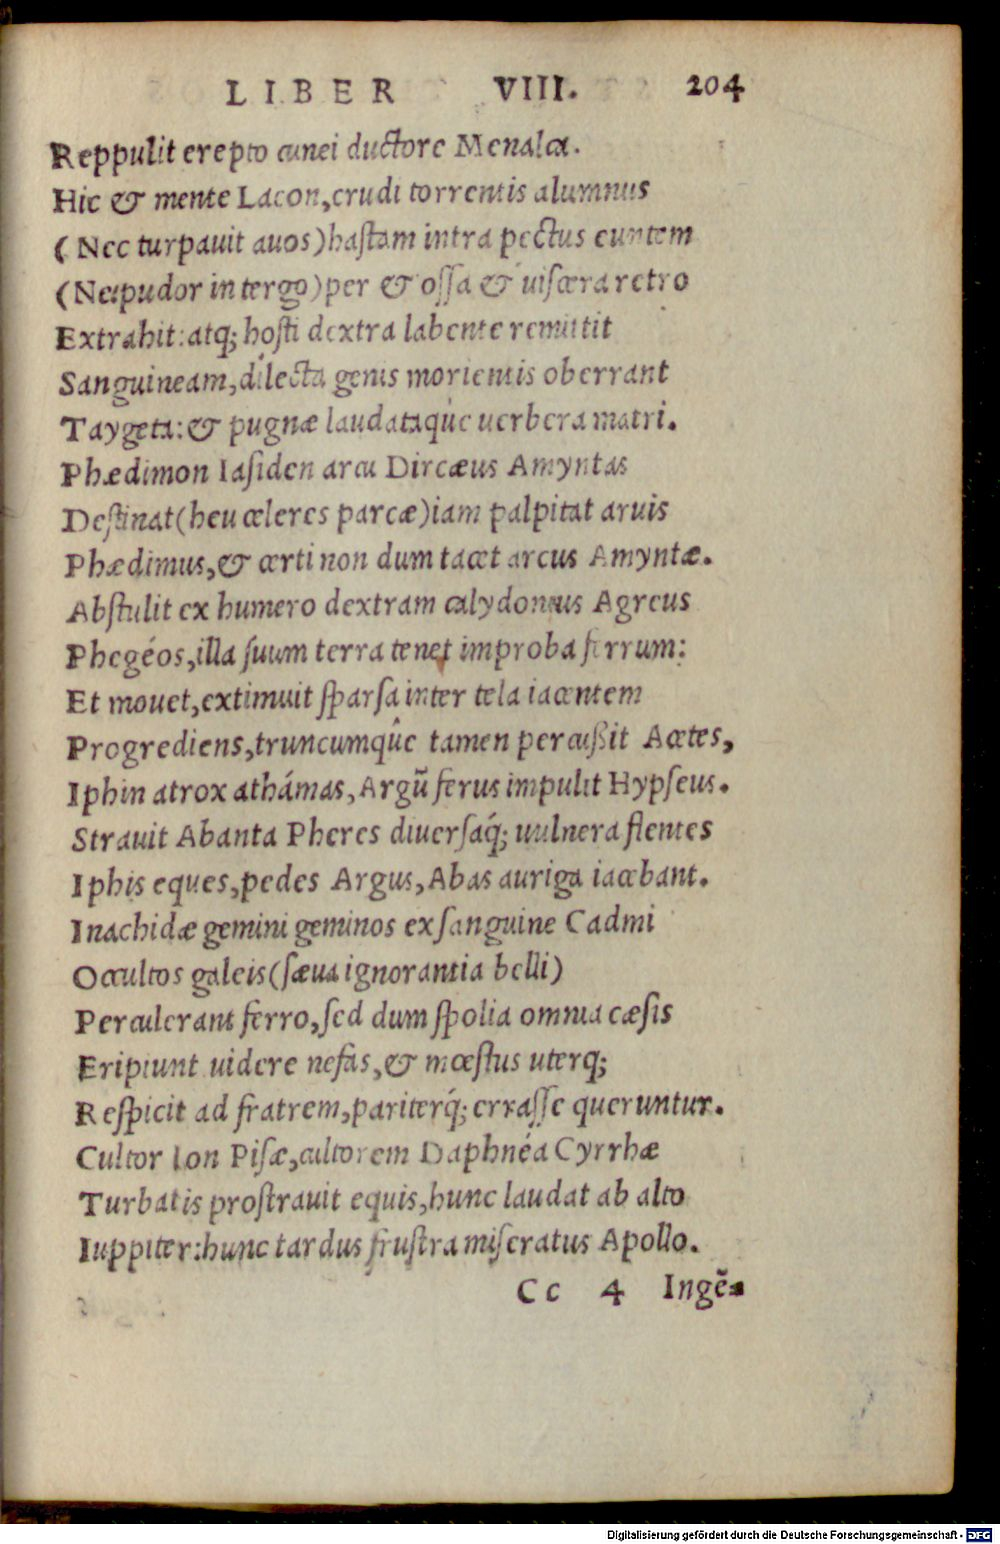 LIBER VIII. 204
Reppulit erepto cunei ductore Menalca.
Hic & mente Lacon, crudi torrentis alumnus
( Nec turpauit auos) hastam intra pectus euntem
(Ne pudor in tergo) per & ossa & uiscera retro
Extrahit: atq; hosti dextra labente remittit
Sanguineam, dilecta genis morientis oberrant
Taygeta: & pugnæ laudataqúe uerbera matri.
Phædimon Iasiden arcu Dircæus Amyntas
Destinat (heu celeres parcæ) iam palpitat aruis
Phædimus, & certi non dum tacet arcus Amyntæ.
Abstulit ex humero dextram calydonius Agreus
Phegéos, illa suum terra tenet improba ferrum:
Et mouet, extimuit sparsa inter tela iacentem
Progrediens, truncumqûe tamen percußit Acetes,
Iphin atrox athámas, Argũ ferus impulit Hypseus.
Strauit Abanta Pheres diuersaq́; uulnera flentes
Iphis eques, pedes Argus, Abas auriga iacebant.
Inachidæ gemini geminos ex sanguine Cadmi
Occultos galeis (sæua ignorantia belli)
Perculerant ferro, sed dum spolia omnia cæsis
Eripiunt uidere nefas, & mœstus uterq;
Respicit ad fratrem, pariterq́; errasse queruntur.
Cultor Ion Pisæ, cultorem Daphnéa Cyrrhæ
Turbatis prostrauit equis, hunc laudat ab alto
Iuppiter: hunc tardus frustra miseratus Apollo.
Cc 4 Ingẽ-
Digitalisierung gefördert durch die Deutsche Forschungsgemeinschaft - DFG